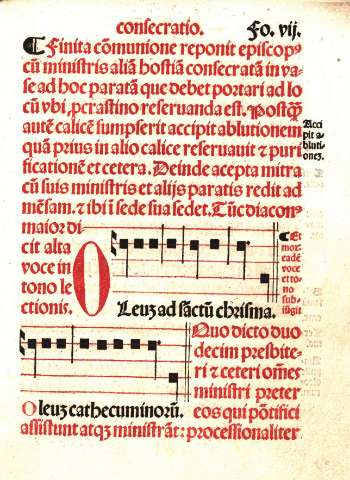 consecratio.
Fo. vij.
¶ Finita cõmunione reponit episcopꝰ
cũ ministris aliã hostiã consecratã in va-
se ad hoc paratã que debet portari ad lo
cũ vbi ꝓ crastino reseruanda est. Postꝙ̃
autẽ calicẽ sumpserit accipit ablutionem
quã prius in alio calice reseruauit ⁊ puri
ficationẽ et cetera. Deinde acepta mitra
cũ suis ministris et alijs paratis redit ad
mẽsam. ⁊ ibi ĩ sede sua sedet. Tũc diaconꝰ
Acci
pit a-
bluti-
onez.
maior di-
cit alta
voce in
tono le
ctionis.
¶ Et
mox
eadẽ
voce
et to-
no
sub-
iũgit
Oleuz ad sãctũ chrisma.
Oleuz cathecuminorũ.
Quo dicto duo
decim presbite-
ri ⁊ ceteri om̃es
ministri preter
eos qui põtifici
assistunt atqꝫ ministrãt: processionaliter